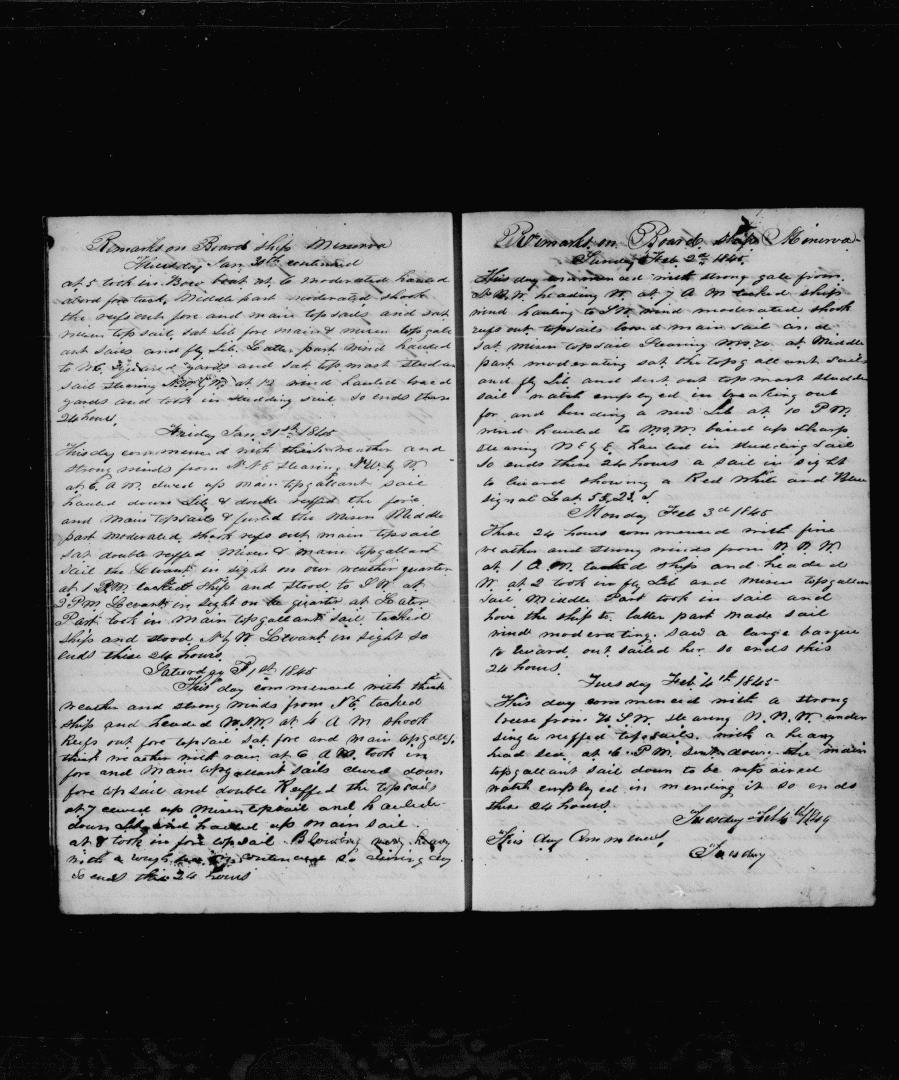 Remarks on Board ship Minerva
Thursday Jan 30th continued
at 5 took in Bow boat at 6 moderated hauled
abord fore tack, Middle part moderated shook
the refs out fore and main top sails and sat
mizen top sail, sat Lib fore main & mizen topgall
ant sails and fly Lib. Latter part wind hauled
to yards and sat top mast studen
sail stearing N.W.b.W. at 12 wind hauled braced
yards and took in studding sail so ends these
24 hours.
Friday Jan, 31st 1845
This day commenced with thick weather and
strong winds from N.N.E stearing N.W. by W.
at 6 A.M. clued up main topgallant sail
hauled down Lib & double reffed the fore
and main topsails & furled the Mizen Middle
part moderated, shook refs out main topsail
sat double reffed Mizen & main topgallant
sail the Levant in sight on our weather quarter
at 1 P.M. tacked ship and stood to S.W. at
3 P.M. Levant in sight on lee quarter at Later
Part took in main topgallant sail. tacked
ship and stood N by W Levant in sight so
ends these 24 hours.
Saturday F 1st 1845
This day commenced with thick
weather and strong winds from N.E. tacked
ship and headed W.N.W. at 4 A M shook
Reefs out fore topsail sat fore and main topgalls.
thick weather with rain. at 6 A.M. took in
fore and Main topgallant sails clued down
fore top sail and double Reffed the topsails
at 7 clued up mizen topsail and hauled
down Lib and hauled up main sail.
at 8 took in fore topsail. Blowing very heavy
with a rough sea continued so during day
So ends this 24 hours
Remarks on Board ship Minerva
Sunday Feb 2nd 1845
This day commenced with strong gale from
N.b.W. heading W. at 7 A M tacked ship
wind hauling to S.W. wind moderated shook
refs out topsails loosed main sail and
sat mizen topsail Stearing at Middle
part moderating sat the topgallant sails
and fly Lib and sent out top mast studden
sail watch employed in breaking out
for and bending a new Lib at 10 P.M.
wind hauled to braced up sharp
stearing hauled in studding sail
So ends these 24 hours a sail in sight
to leward showing a Red White and Blue
signal Lat 55,23 S.
Monday Feb 3rd 1845
These 24 hours commenced with fine
weather and strong winds from N.N.W
at 1 A.M. tacked ship and headed
W. at 2 took in fly Lib and mizen topgallan
sail Middle Part took in sail and
hove the ship to. latter part made sail
wind moderating. saw a large barque
to leward out sailed her. so ends this
24 hours.
Tuesday Feb. 4th 1845
This day commenced with a strong
breese from W.S.W. stearing N.N.W. under
single reffed topsails. with a heavy
head sea at 6 P.M. sent down the main
topgallant sail down to be repaired
watch employed in mending it so ends
these 24 hours.
Tuesday Feb 6th/1849
This day Commenced,
Tuesday